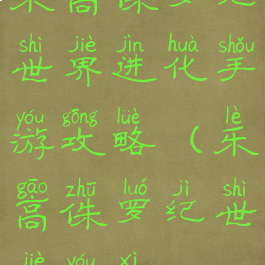 高侏
shì jiè jìn huà shǒu
世界进化手
yóu gōng lüè lè
游攻略（乐
gāo zhū luó jì shì
高侏罗纪世
jiè yóu xì